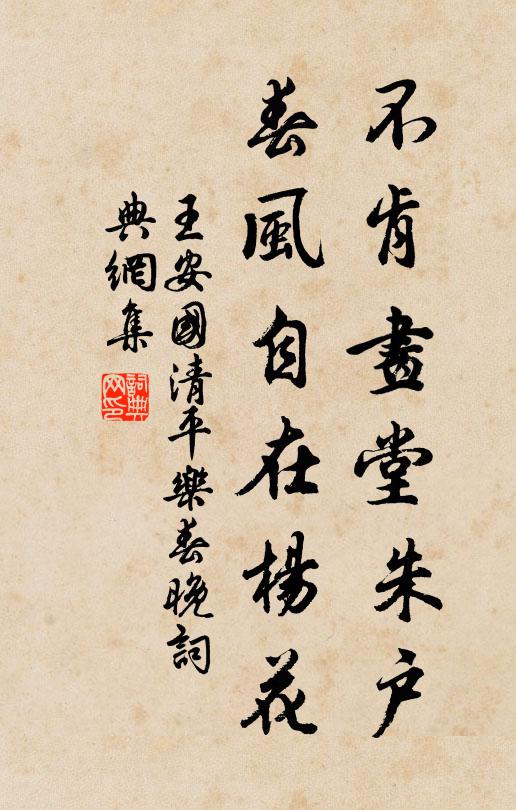 不肯畫堂朱户
春風自在楊花
王安國清平樂春晚詞
典網集
詞典网印